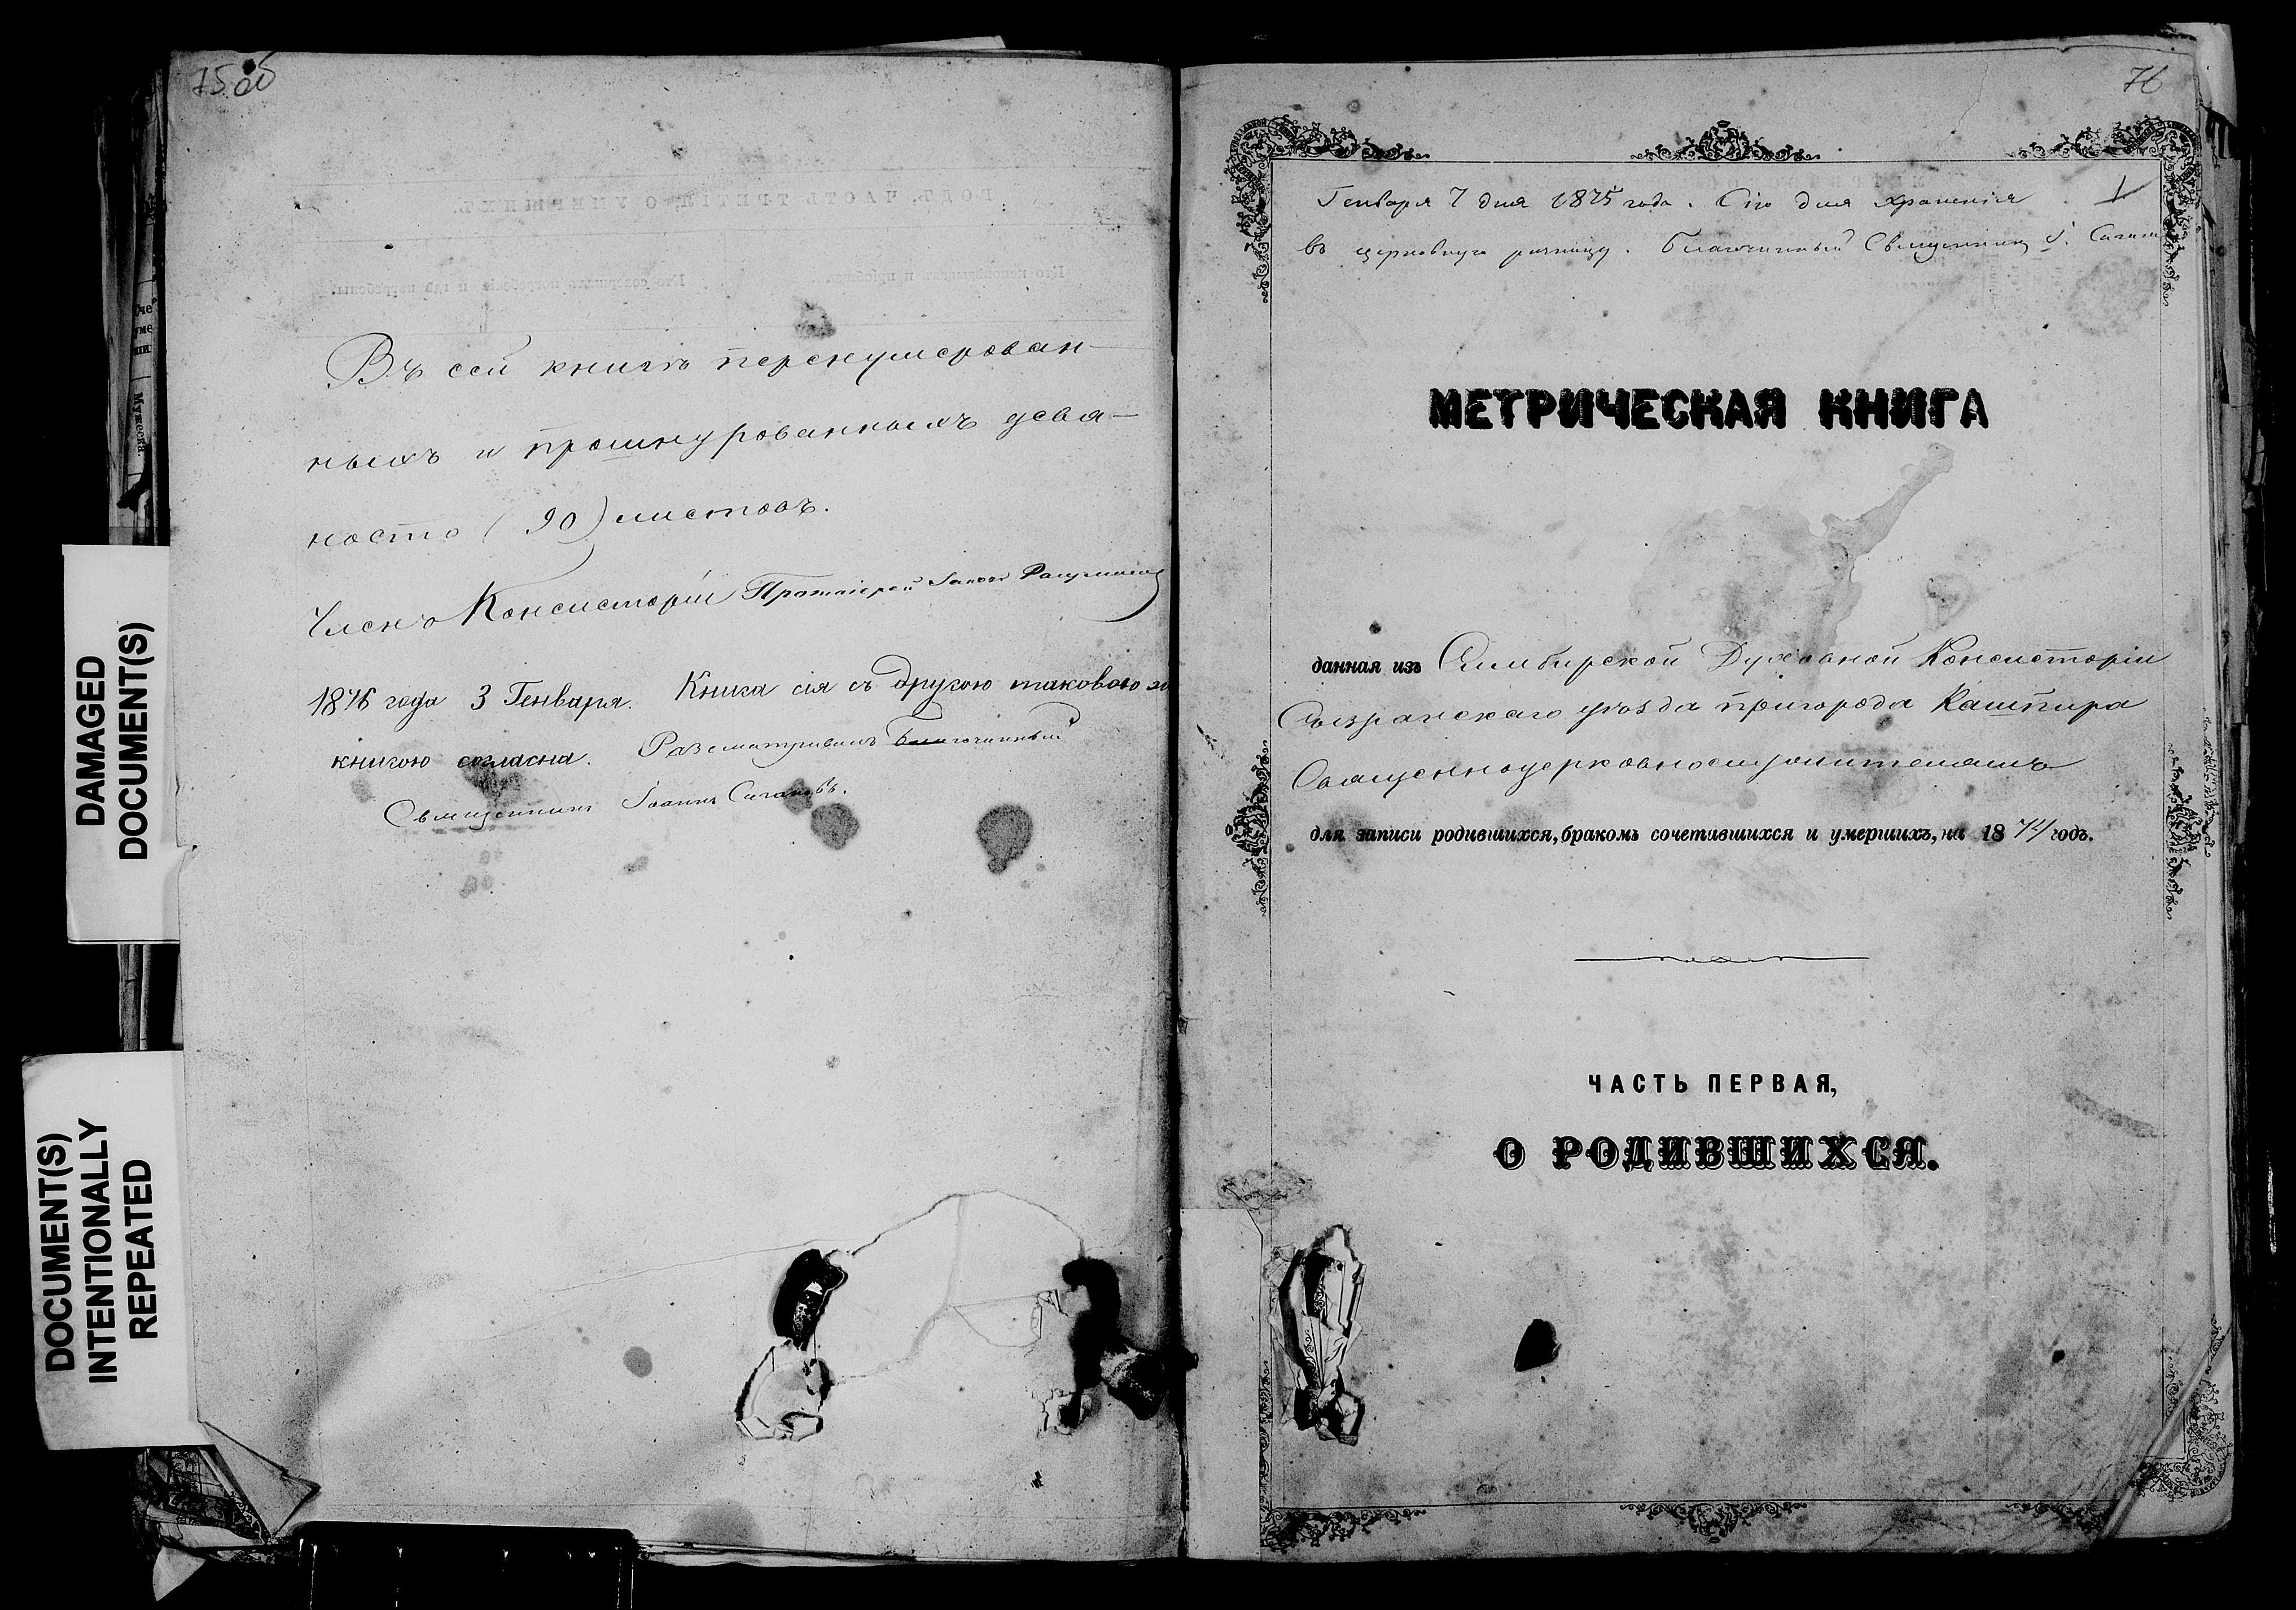 75 об
Въ сей книгѣ перенумерован-
ныхъ и прошнурованныхъ девя-
носто (90) листовъ.
Членъ Консисторіи Протоіерей
1876 года 3 Генваря. Книга сія съ другою таковою же
книгою согласна. Разсматривалъ Благочинный
Священникъ Іоаннъ
DAMAGED
DOCUMENT(S)
DOCUMENT(S)
INTENTIONALLY
REPEATED
76
Генваря 7 дня 1875 года. Сію для храненія
1
въ церковную ризницу. Благочинный Священникъ І.
МЕТРИЧЕСКАЯ КНИГА
данная изъ Симбирской Духовной Консисторіи
Сызранскаго уѣзда пригорода Кашпира
Священноцерковнослужителямъ
для записи родившихся, бракомъ сочетавшихся и умершихъ, на 1874 годъ.
ЧАСТЬ ПЕРВАЯ,
О РОДИВШИХСЯ.